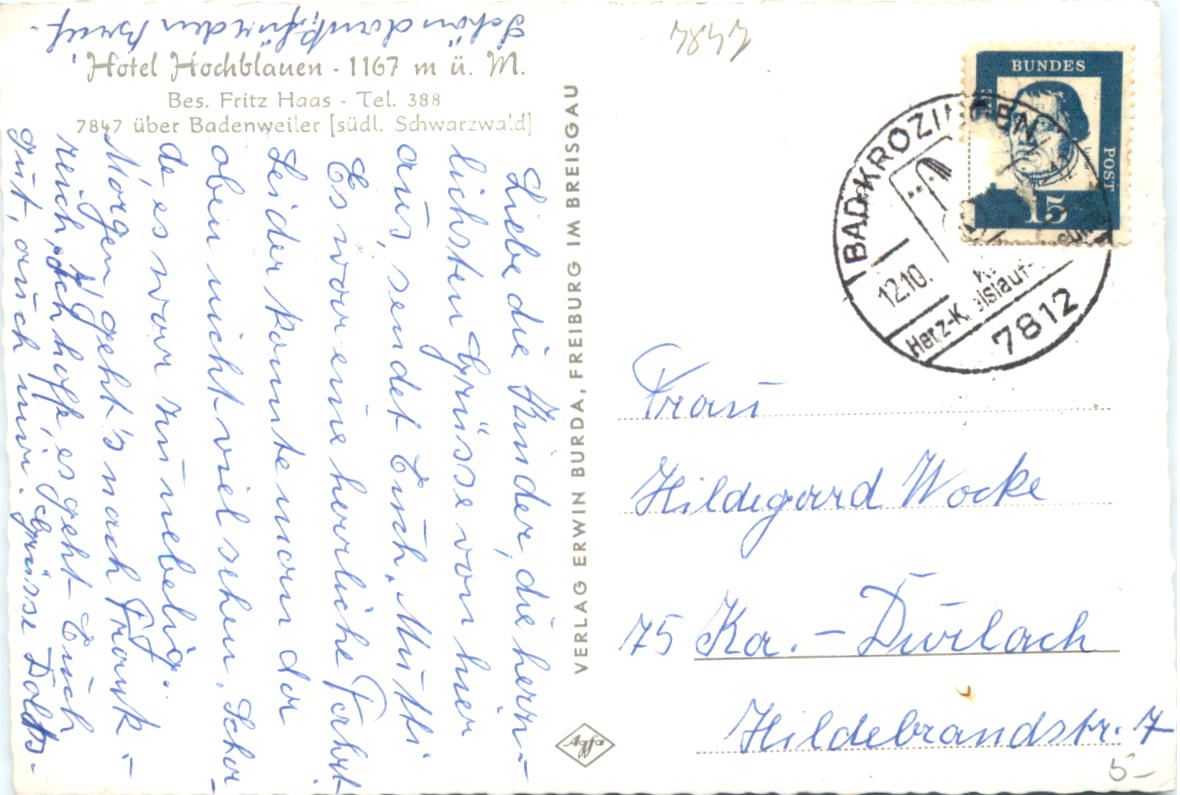 Schön dank für den Brief.
Hotel Hochblauen - 1167 m ü. M.
Bes. Fritz Haas - Tel. 388
7847 über Badenweiler [südl. Schwarzwald]
Liebe die Kinder, die herr-
lichsten Grüsse von hier
aus, sendet Euch, Mutti
Es war eine herrliche Fahrt
Leider konnte man da
oben nicht viel sehen. Scha-
de es war zu nebelig.
Morgen geht's nach Frank-
reich. Ich hoff, es geht Euch
gut, auch mir. Grüsse
VERLAG ERWIN BURDA, FREIBURG IM BREISGAU
Agfa
7847
BUNDES
POST
15
BAD KROZINGEN
12.10.
Herz-K eislauf-
7812
Frau
Hildegard Wocke
75 Ka.- Durlach
Hildebrandstr. 7
5-